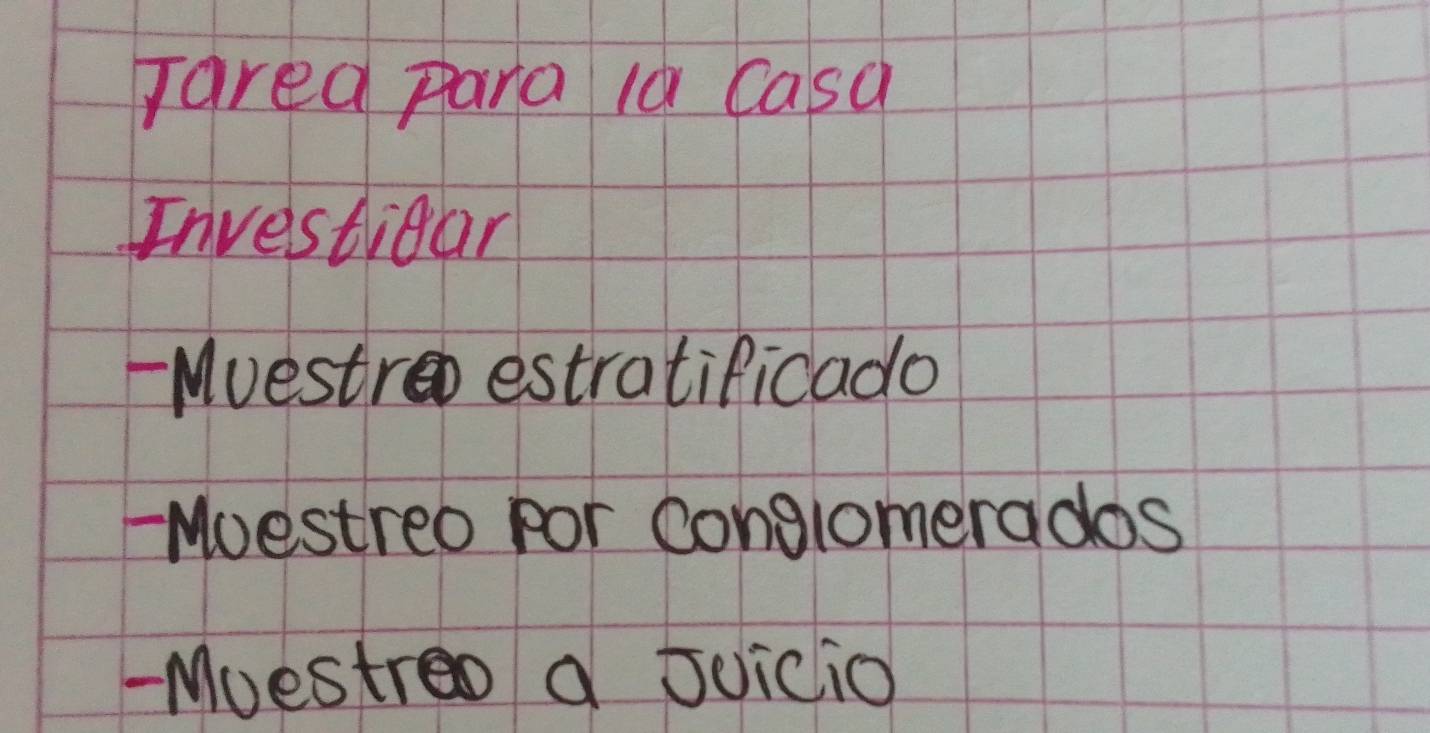 Tarea para la Casa
Investigar
-Muestreo estratificado
-Muestreo por conglomerados
-Muestreo a Juicio